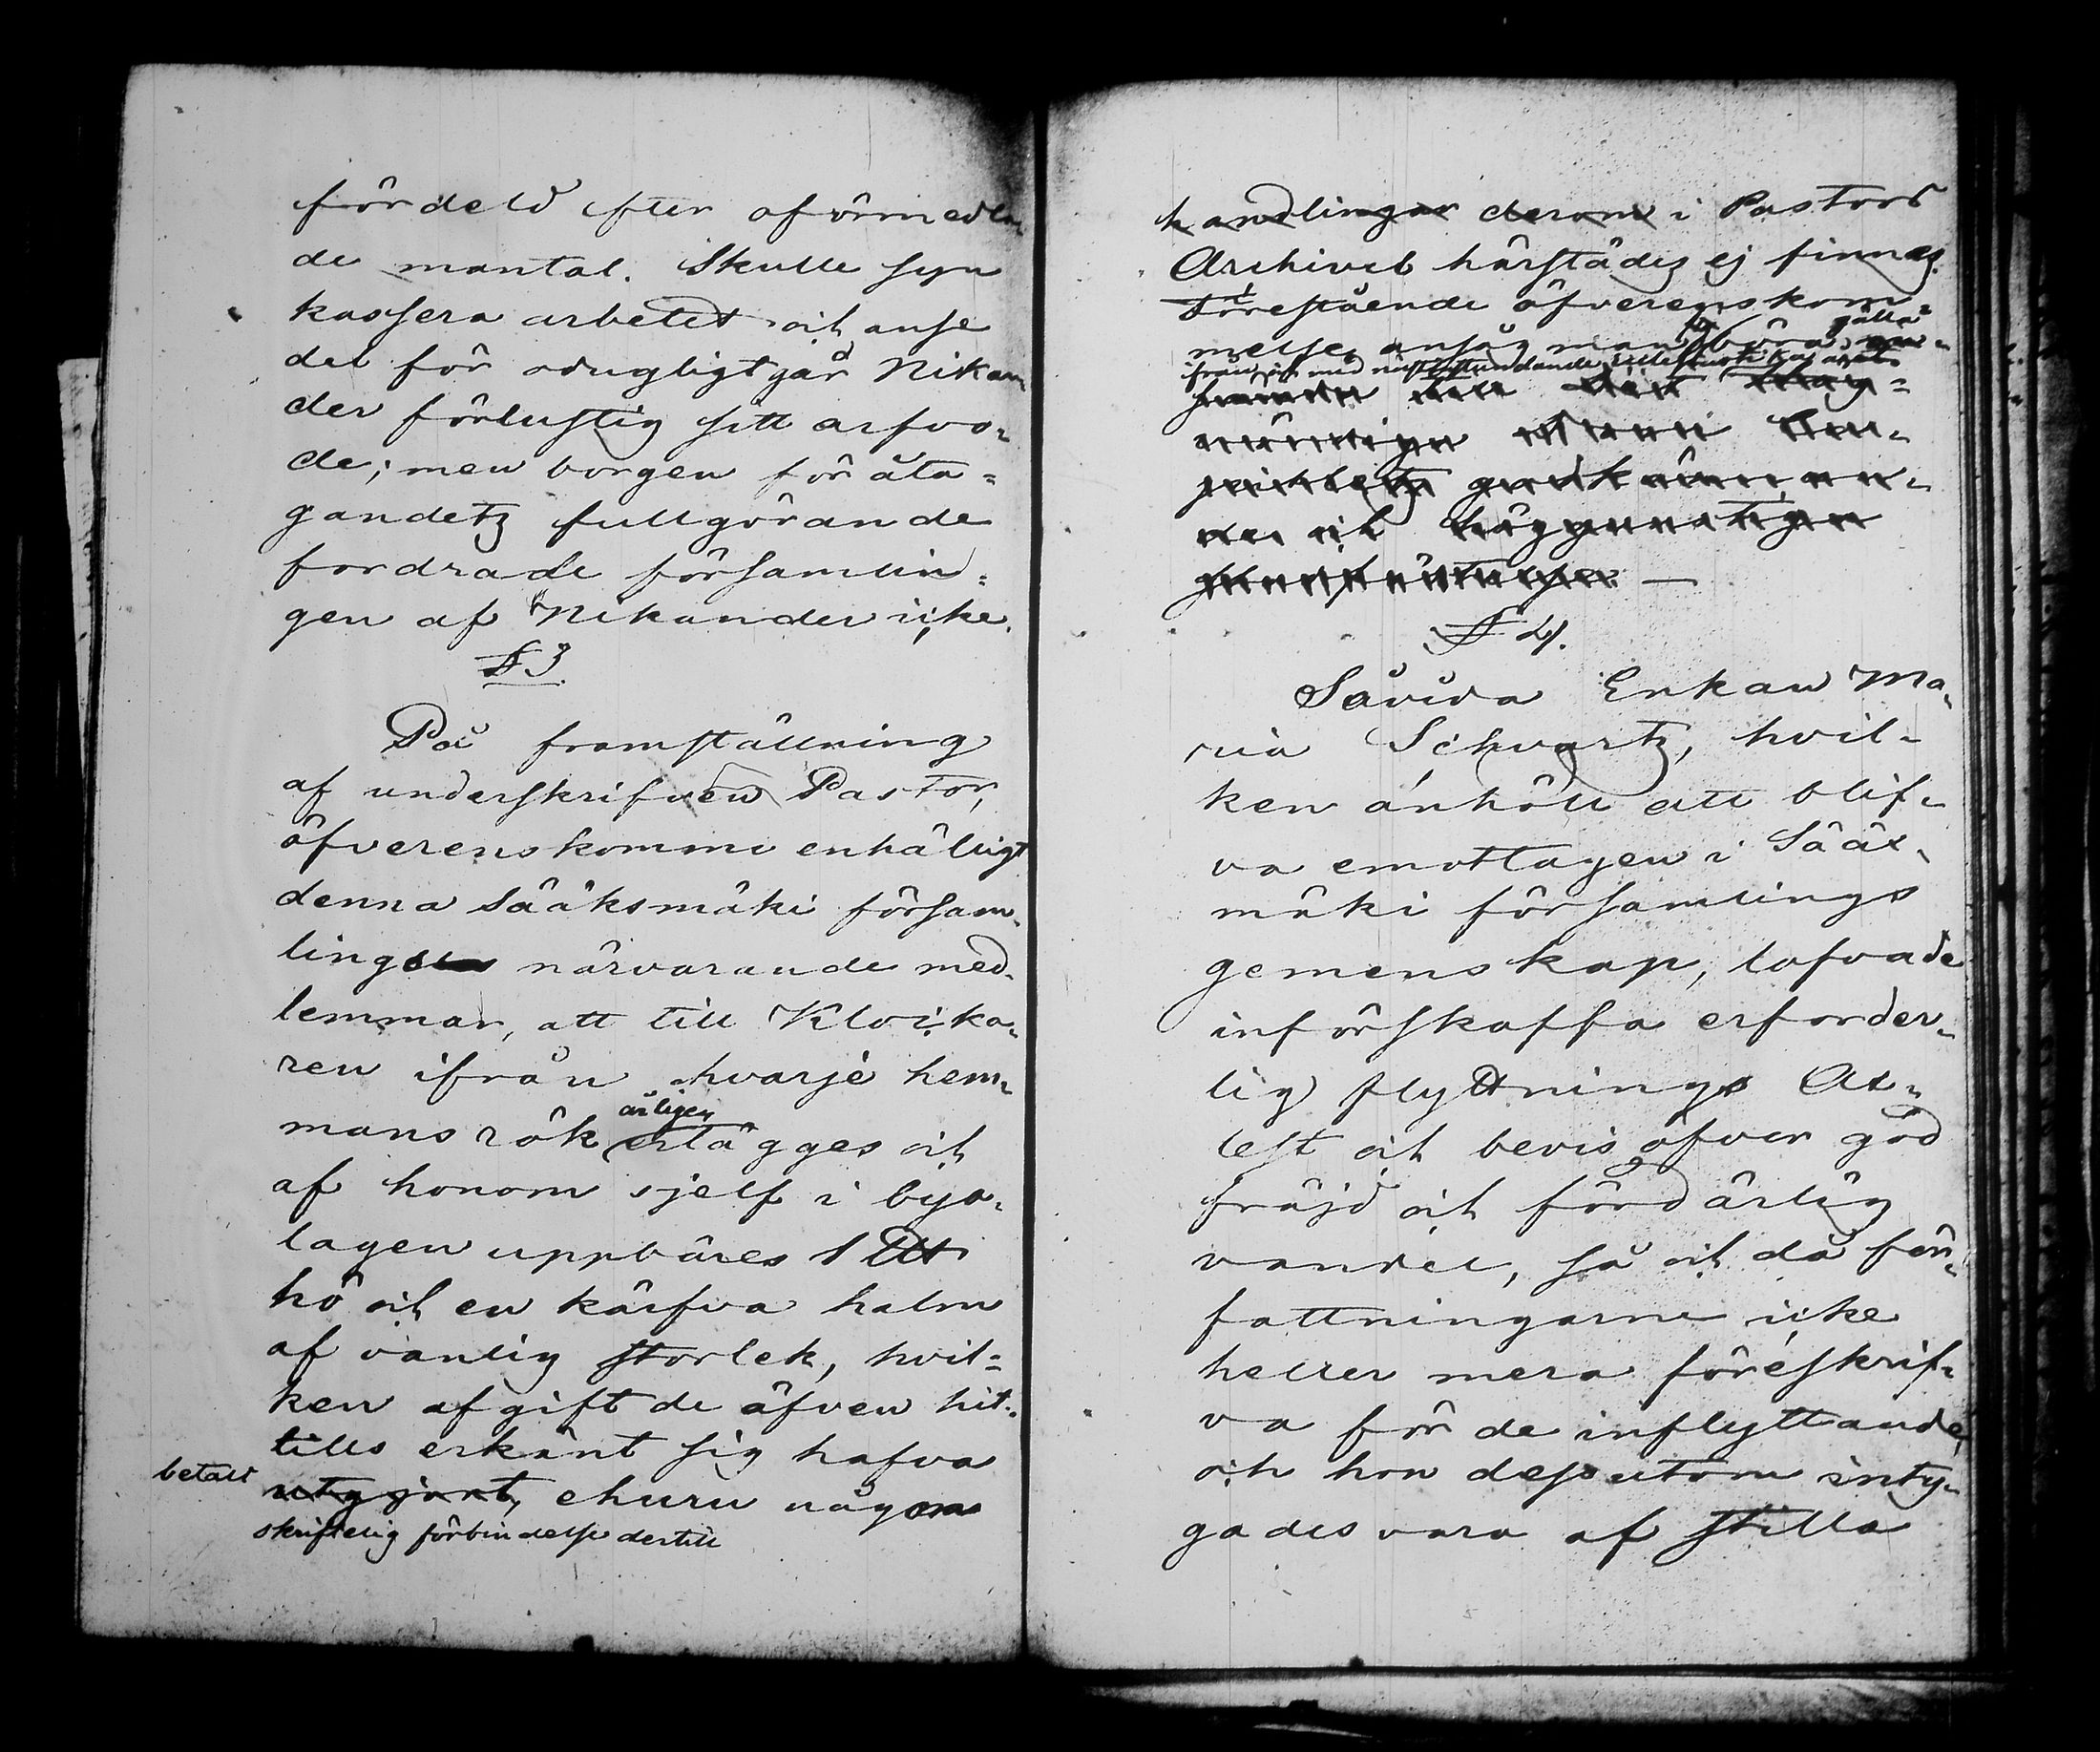 fördeld efter oförmedla-
de mantal. Skulle syn
kassera arbetet och anse
det för odugligt går d Nikan-
der förlustig sitt arfvo-
de; men borgen för åta-
gandetz fullgörande
fordrade församlin-
gen af Nikander icke.
§ 3
På framställning
af underskrifven Pastor,
öfverenskomme enhälligt
denna Sääksmäki försam-
lings närvarande med-
lemmar, att till Klocka-
ren ifrån hvarje hem-
årligen
mans rök erlägges och
af honom sjelf i bya-
lagen uppbäres 1 L℔
hö och en kärfva halm
af vanlig storlek, hvil-
ken afgift de äfven hit-
tills erkänt sig hafva
betalt
utgjort, ehuru någon
skriftelig förbindelse dertill
handlingar derom i Pastors
Archivet härstädes ej finnes.
Förestående öfverenskom-
melse ansåg man böra gälla
ifrån och med nästinstundande
den
och
§ 4.
Såvida Enkan Ma-
ria Schvartz, hvil-
ken anhöll att blif-
va emottagen i Sääx-
mäki församlings
gemenskap, lofvade
införskaffa erforder-
lig flyttnings At-
test och bevis öfver god
fräjd och förd ärlig
vandel, så och då för-
fattningarne icke
heller mera föreskrif-
va för de inflyttande,
och hon dessutom inty-
gades vara af stilla